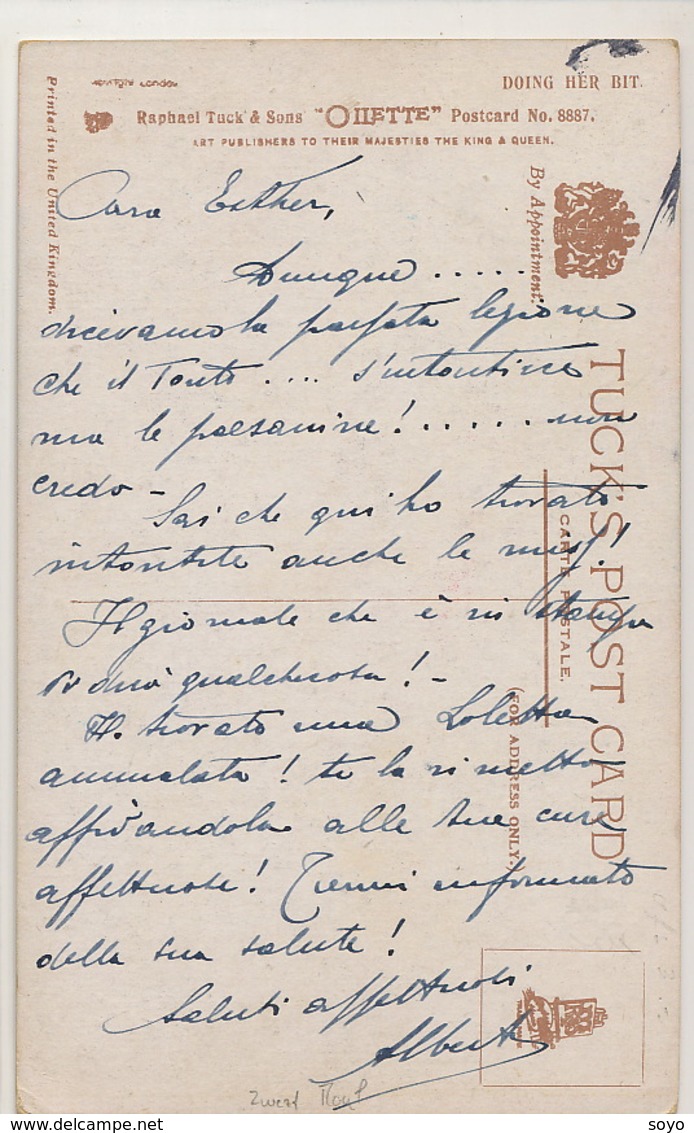 DOING HER BIT.
Raphael Tuck & Sons "OILETTE" Postcard No. 8887.
ART PUBLISHERS TO THEIR MAJESTIES THE KING & QUEEN.
Printed in the United Kingdom.
By Appointment.
TUCK'S POST CARD
CARTE POSTALE.
(FOR ADDRESS ONLY.)
Cara Esther,
Dunque .....
dicevamo la passata lezione
che il Tonto .... s'intontisce
ma le paesanine! ..... non
credo -
Sai che qui ho trovato
intontite anche le miss!
Il giornale che è in stampa
vi dirà qualchecosa! -
H. trovato una Loletta
ammalata! te la rimetto
affidandola alle tue cure
affettuose! Tienmi informato
della sua salute!
Saluti affettuosi
Albert
soyo